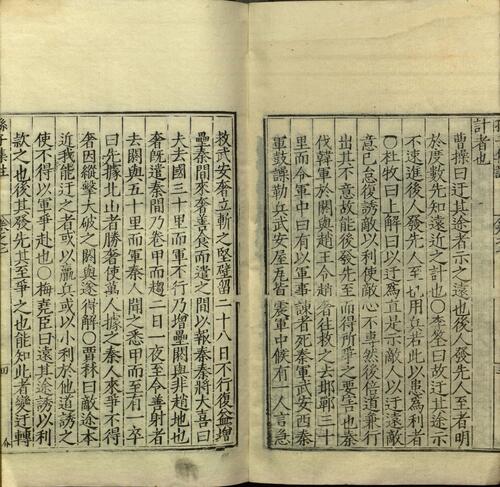 計者也
曹操曰迂其途者示之遠也後人發先人至者明
於度數先知遠近之計也〇李筌曰故迂其途示
不速進後人發先人至也用兵若此以患為利者
〇杜牧曰上解曰以迂為直是示敵人以迂遠敵
意已怠復誘敵以利使敵心不專然後倍道兼行
出其不意故能後發先至而得所爭之要害也秦
伐韓軍於閼與趙王令趙奢往救之去邯鄲三十
里而令軍中曰有以軍事諫者死秦軍武安西秦
軍鼓譟勒兵武安屋瓦皆震軍中候有一人言急
救武安奢立斬之堅壁留二十八日不行復益增
壘秦間來奢善食而遣之間以報秦秦將大喜曰
夫去國三十里而軍不行乃增壘閼與非趙地也
奢既遣秦間乃卷甲而趨二日一夜至令善射者
去閼與五十里而軍秦人聞之悉甲而至有一卒
曰先據北山者勝奢使萬人據之秦人來爭不得
奢因縱擊大破之閼與遂得解〇賈林曰敵途本
近我能迂之者或以羸兵或以小利於他道誘之
使不得以軍爭赴也〇梅堯臣曰遠其途誘以利
款之也後其發先其至爭之也能知此者變迂轉